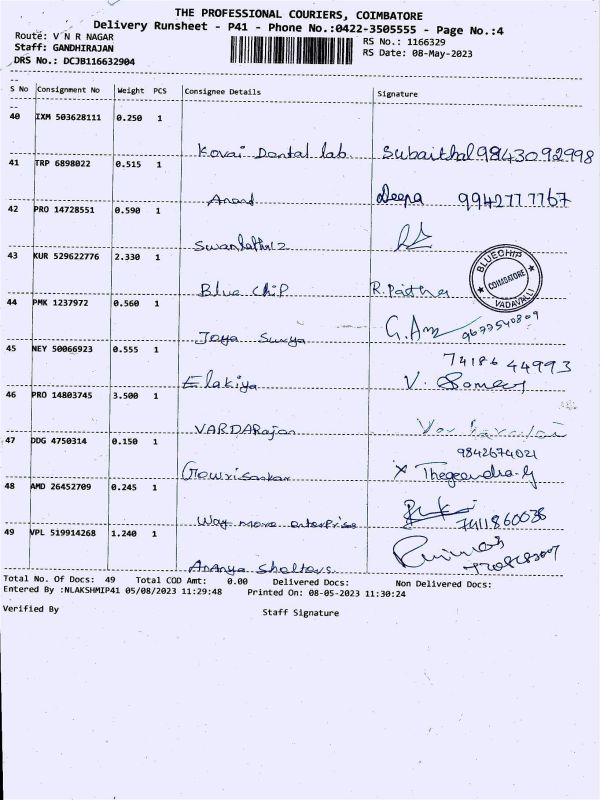 THE PROFESSIONAL COURIERS, COIMBATORE
Delivery Runsheet - P41 - Phone No.:0422-3505555 - Page No.:4
Route: V N R NAGAR
RS No.: 1166329
Staff: GANDHIRAJAN
RS Date: 08-May-2023
DRS No.: DCJB116632904
S No Consignment No Weight PCS Consignee Details Signature
40 IXM 503628111 0.250 1
Kovai Dental lab Subaithal 9843092998
41 TRP 6898022 0.515 1
Anand Deepa 9942777767
42 PRO 14728551 0.590 1
43 KUR 529622776 2.330 1
BLUECHIP
COIMBATORE
VADAVALLI
Blue chip R.Paitha
44 PMK 1237972 0.560 1
Jaya Surya
45 NEY 50066923 0.555 1
74186 44993
Elakiya
46 PRO 14803745 3.500 1
VARDARajan
47 DDG 4750314 0.150 1
9842674021
Gowrisankar
48 AMD 26452709 0.245 1
Way more enterprise 7411860036
49 VPL 519914268 1.240 1
Ananya Shelters
Total No. Of Docs: 49 Total COD Amt: 0.00 Delivered Docs: Non Delivered Docs:
Entered By :NLAKSHMIP41 05/08/2023 11:29:48 Printed On: 08-05-2023 11:30:24
Verified By Staff Signature